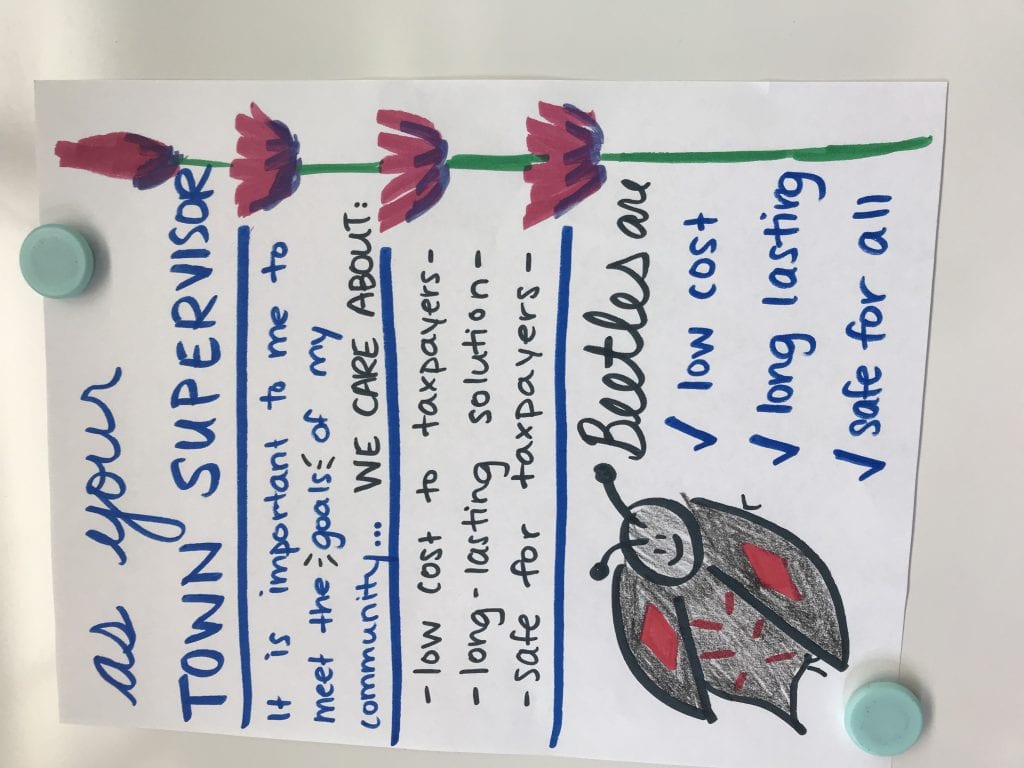 as your
TOWN SUPERVISOR
It is important to me to
meet the goals of my
community... WE CARE ABOUT:
- low cost to taxpayers -
- long-lasting solution -
- safe for taxpayers -
Beetles are
✓ low cost
✓ long lasting
✓ safe for all